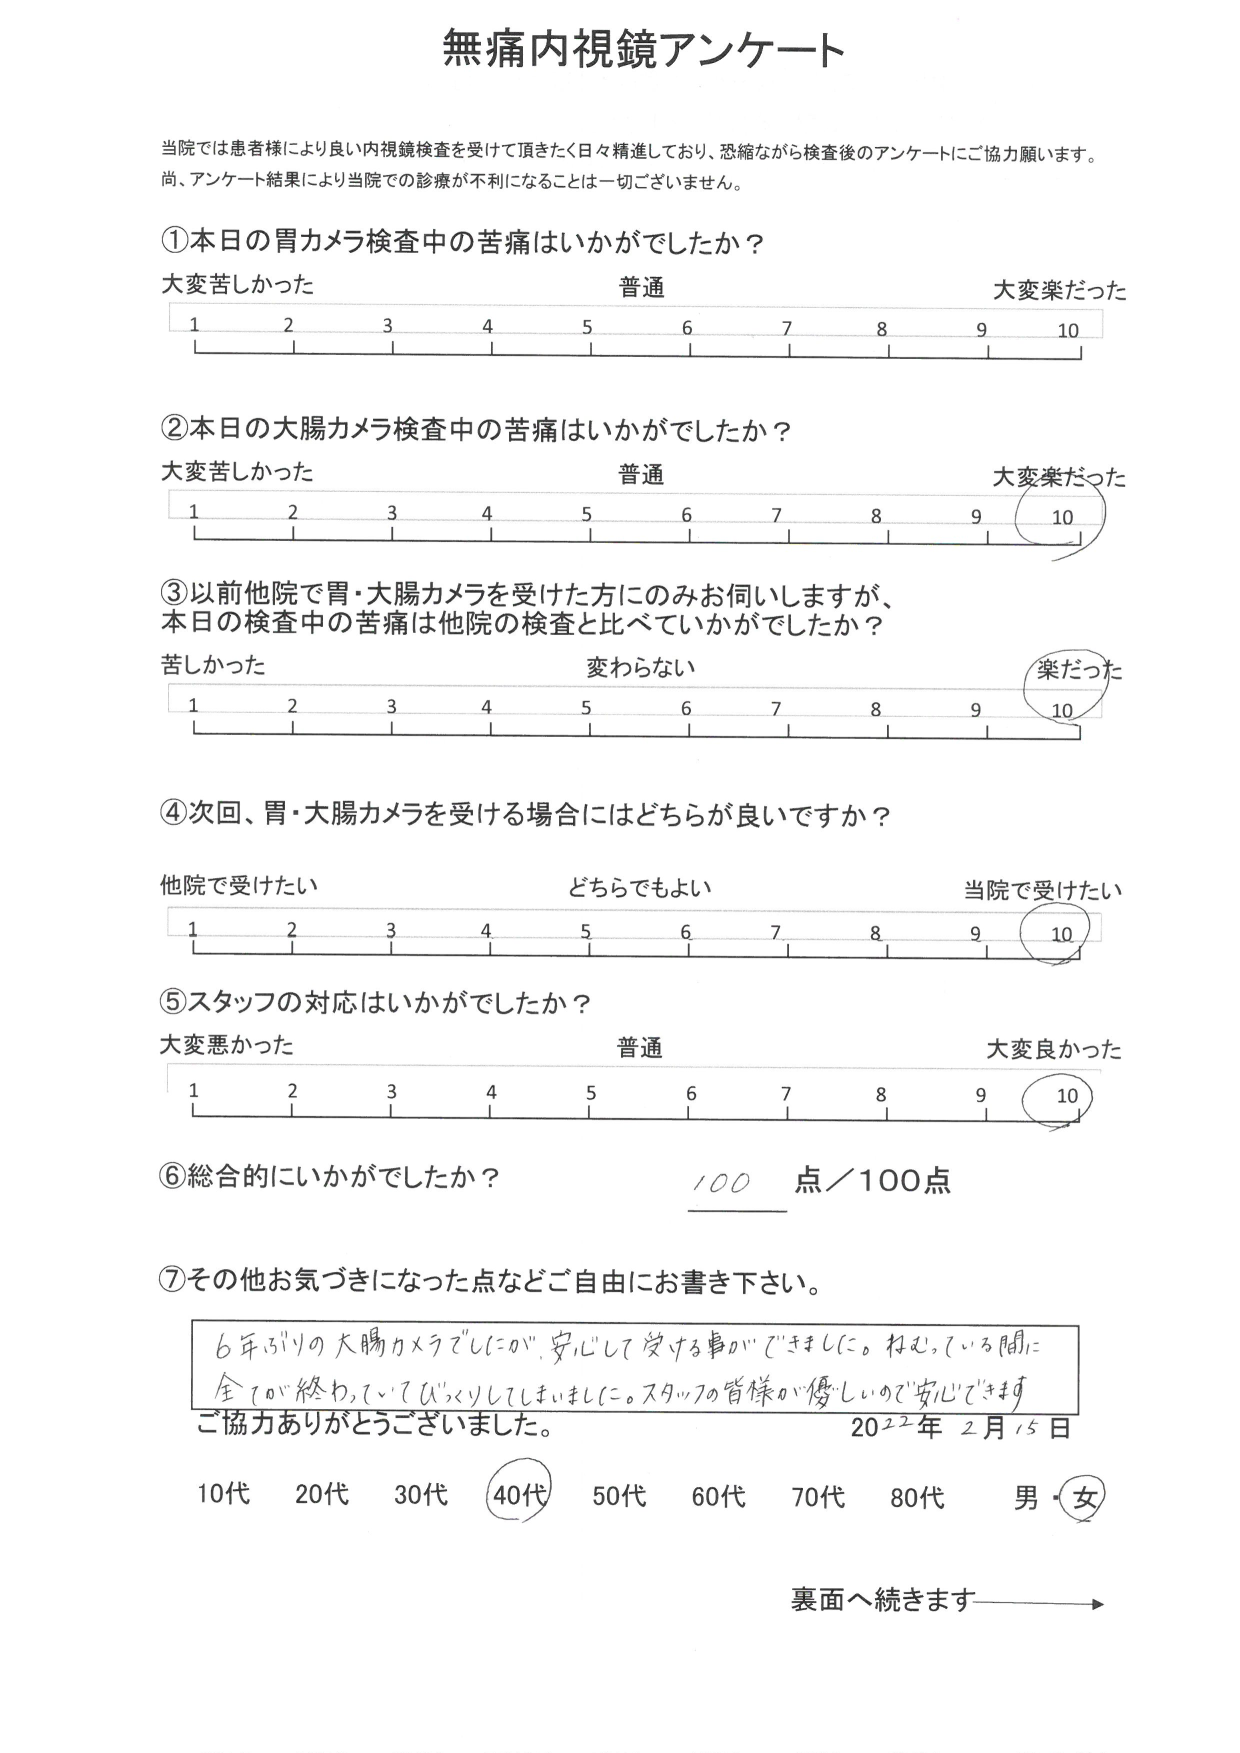 無痛内視鏡アンケート
当院では患者様により良い内視鏡検査を受けて頂きたく日々精進しており、恐縮ながら検査後のアンケートにご協力願います。
尚、アンケート結果により当院での診療が不利になることは一切ございません。
①本日の胃カメラ検査中の苦痛はいかがでしたか？
大変苦しかった 普通 大変楽だった
1 2 3 4 5 6 7 8 9 10
②本日の大腸カメラ検査中の苦痛はいかがでしたか？
大変苦しかった 普通 大変楽だった
1 2 3 4 5 6 7 8 9 10
③以前他院で胃・大腸カメラを受けた方にのみお伺いしますが、
本日の検査中の苦痛は他院の検査と比べていかがでしたか？
苦しかった 変わらない 楽だった
1 2 3 4 5 6 7 8 9 10
④次回、胃・大腸カメラを受ける場合にはどちらが良いですか？
他院で受けたい どちらでもよい 当院で受けたい
1 2 3 4 5 6 7 8 9 10
⑤スタッフの対応はいかがでしたか？
大変悪かった 普通 大変良かった
1 2 3 4 5 6 7 8 9 10
⑥総合的にいかがでしたか？ 100 点／100点
⑦その他お気づきになった点などご自由にお書き下さい。
6年ぶりの大腸カメラでしたが、安心して受ける事ができました。ねむっている間に
全てが終わっていてびっくりしてしまいました。スタッフの皆様が優しいので安心できます
ご協力ありがとうございました。 2022年 2月 15日
10代 20代 30代 40代 50代 60代 70代 80代 男・女
裏面へ続きます